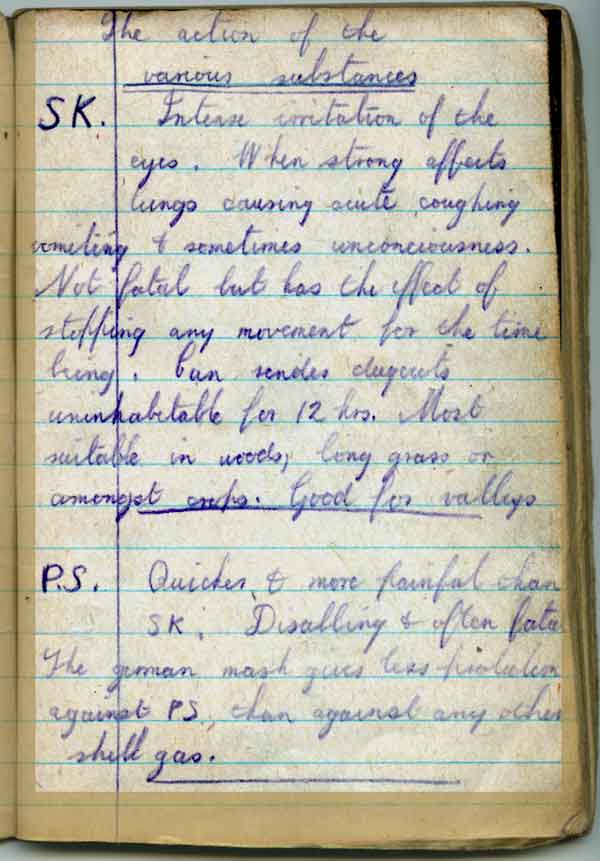 The action of the
various substances
SK. Intense irritation of the
eyes. When strong affects
lungs causing acute coughing
vomiting & sometimes unconciousness.
Not fatal but has the effect of
stopping any movement for the time
being. Can render dugouts
uninhabitable for 12 hrs. Most
suitable in woods, long grass or
amongst crops. Good for valleys
P.S. Quicker & more painful than
SK. Disabling & often fatal
The german mask gives less protection
against PS, than against any other
shell gas.